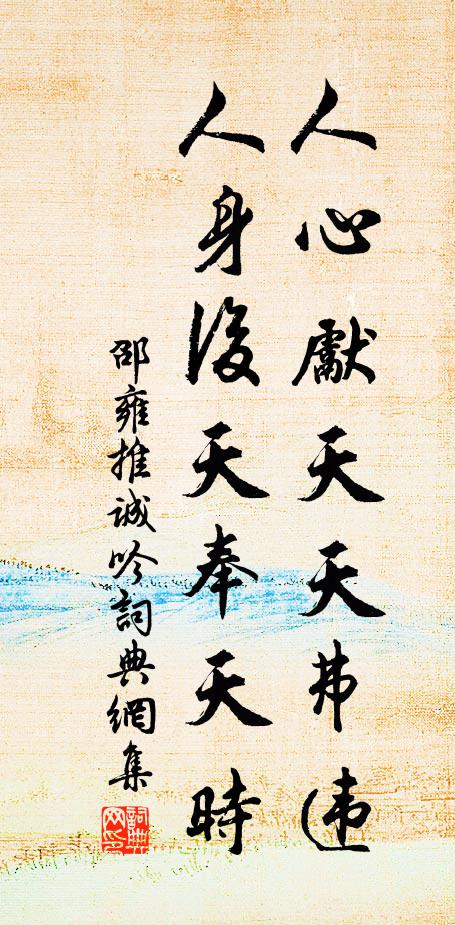 人心獻天天弗违
人身後天奉天時
邵雍推诚吟詞典網集
詞典网